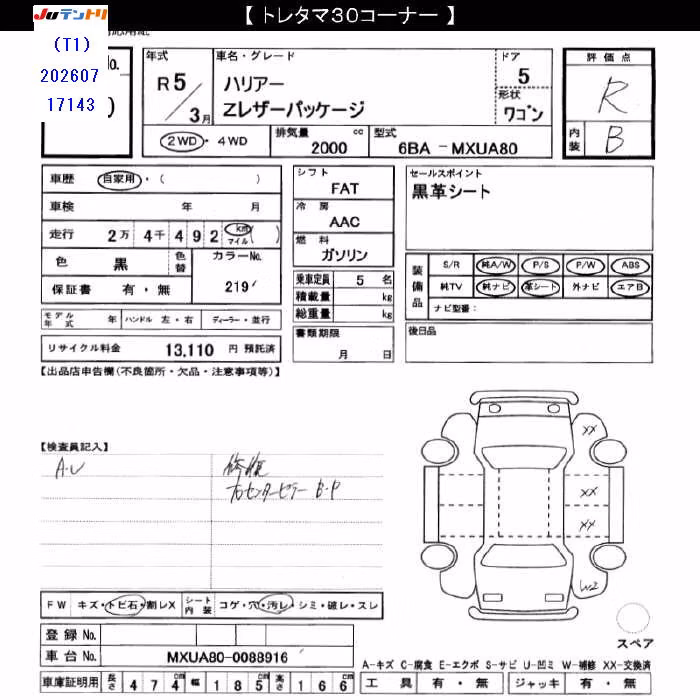 【 トレタマ30コーナー 】
JUテントリ
(T1)
202607
17143
No.
年式 車名・グレード ドア 評価点
R5/3月 ハリアー 5 R
Zレザーパッケージ 形状 ワゴン
2WD・4WD 排気量 2000 cc 型式 6BA -MXUA80 内装 B
車歴 自家用・( )
車検 年 月
走行 2万 4千 4 9 2 km マイル ( )
色 黒 色替 カラーNo.
保証書 有・無 219
モデル年式 年 ハンドル 左・右 ディーラー・並行
リサイクル料金 13,110 円 預託済
シフト FAT
冷房 AAC
燃料 ガソリン
乗車定員 5 名
積載量 kg
総重量 kg
書類期限
月 日
セールスポイント
黒革シート
装備品 S/R 純A/W P/S P/W ABS
純TV 純ナビ 革シート 外ナビ エアB
ナビ型番:
後日品
【出品店申告欄(不良箇所・欠品・注意事項等)】
【検査員記入】
A・U 修復
右センターピラー B・P
XX
XX
XX
W2
FW キズ・トビ石・割レX シート内装 コゲ・穴・汚レ・シミ・破レ・スレ
登録 No.
車台 No. MXUA80-0088916
車庫証明用 長さ 4 7 4 幅 1 8 5 高さ 1 6 6
スペア
A-キズ C-腐食 E-エクボ S-サビ U-凹ミ W-補修 XX-交換済
工具 有・無 ジャッキ 有・無